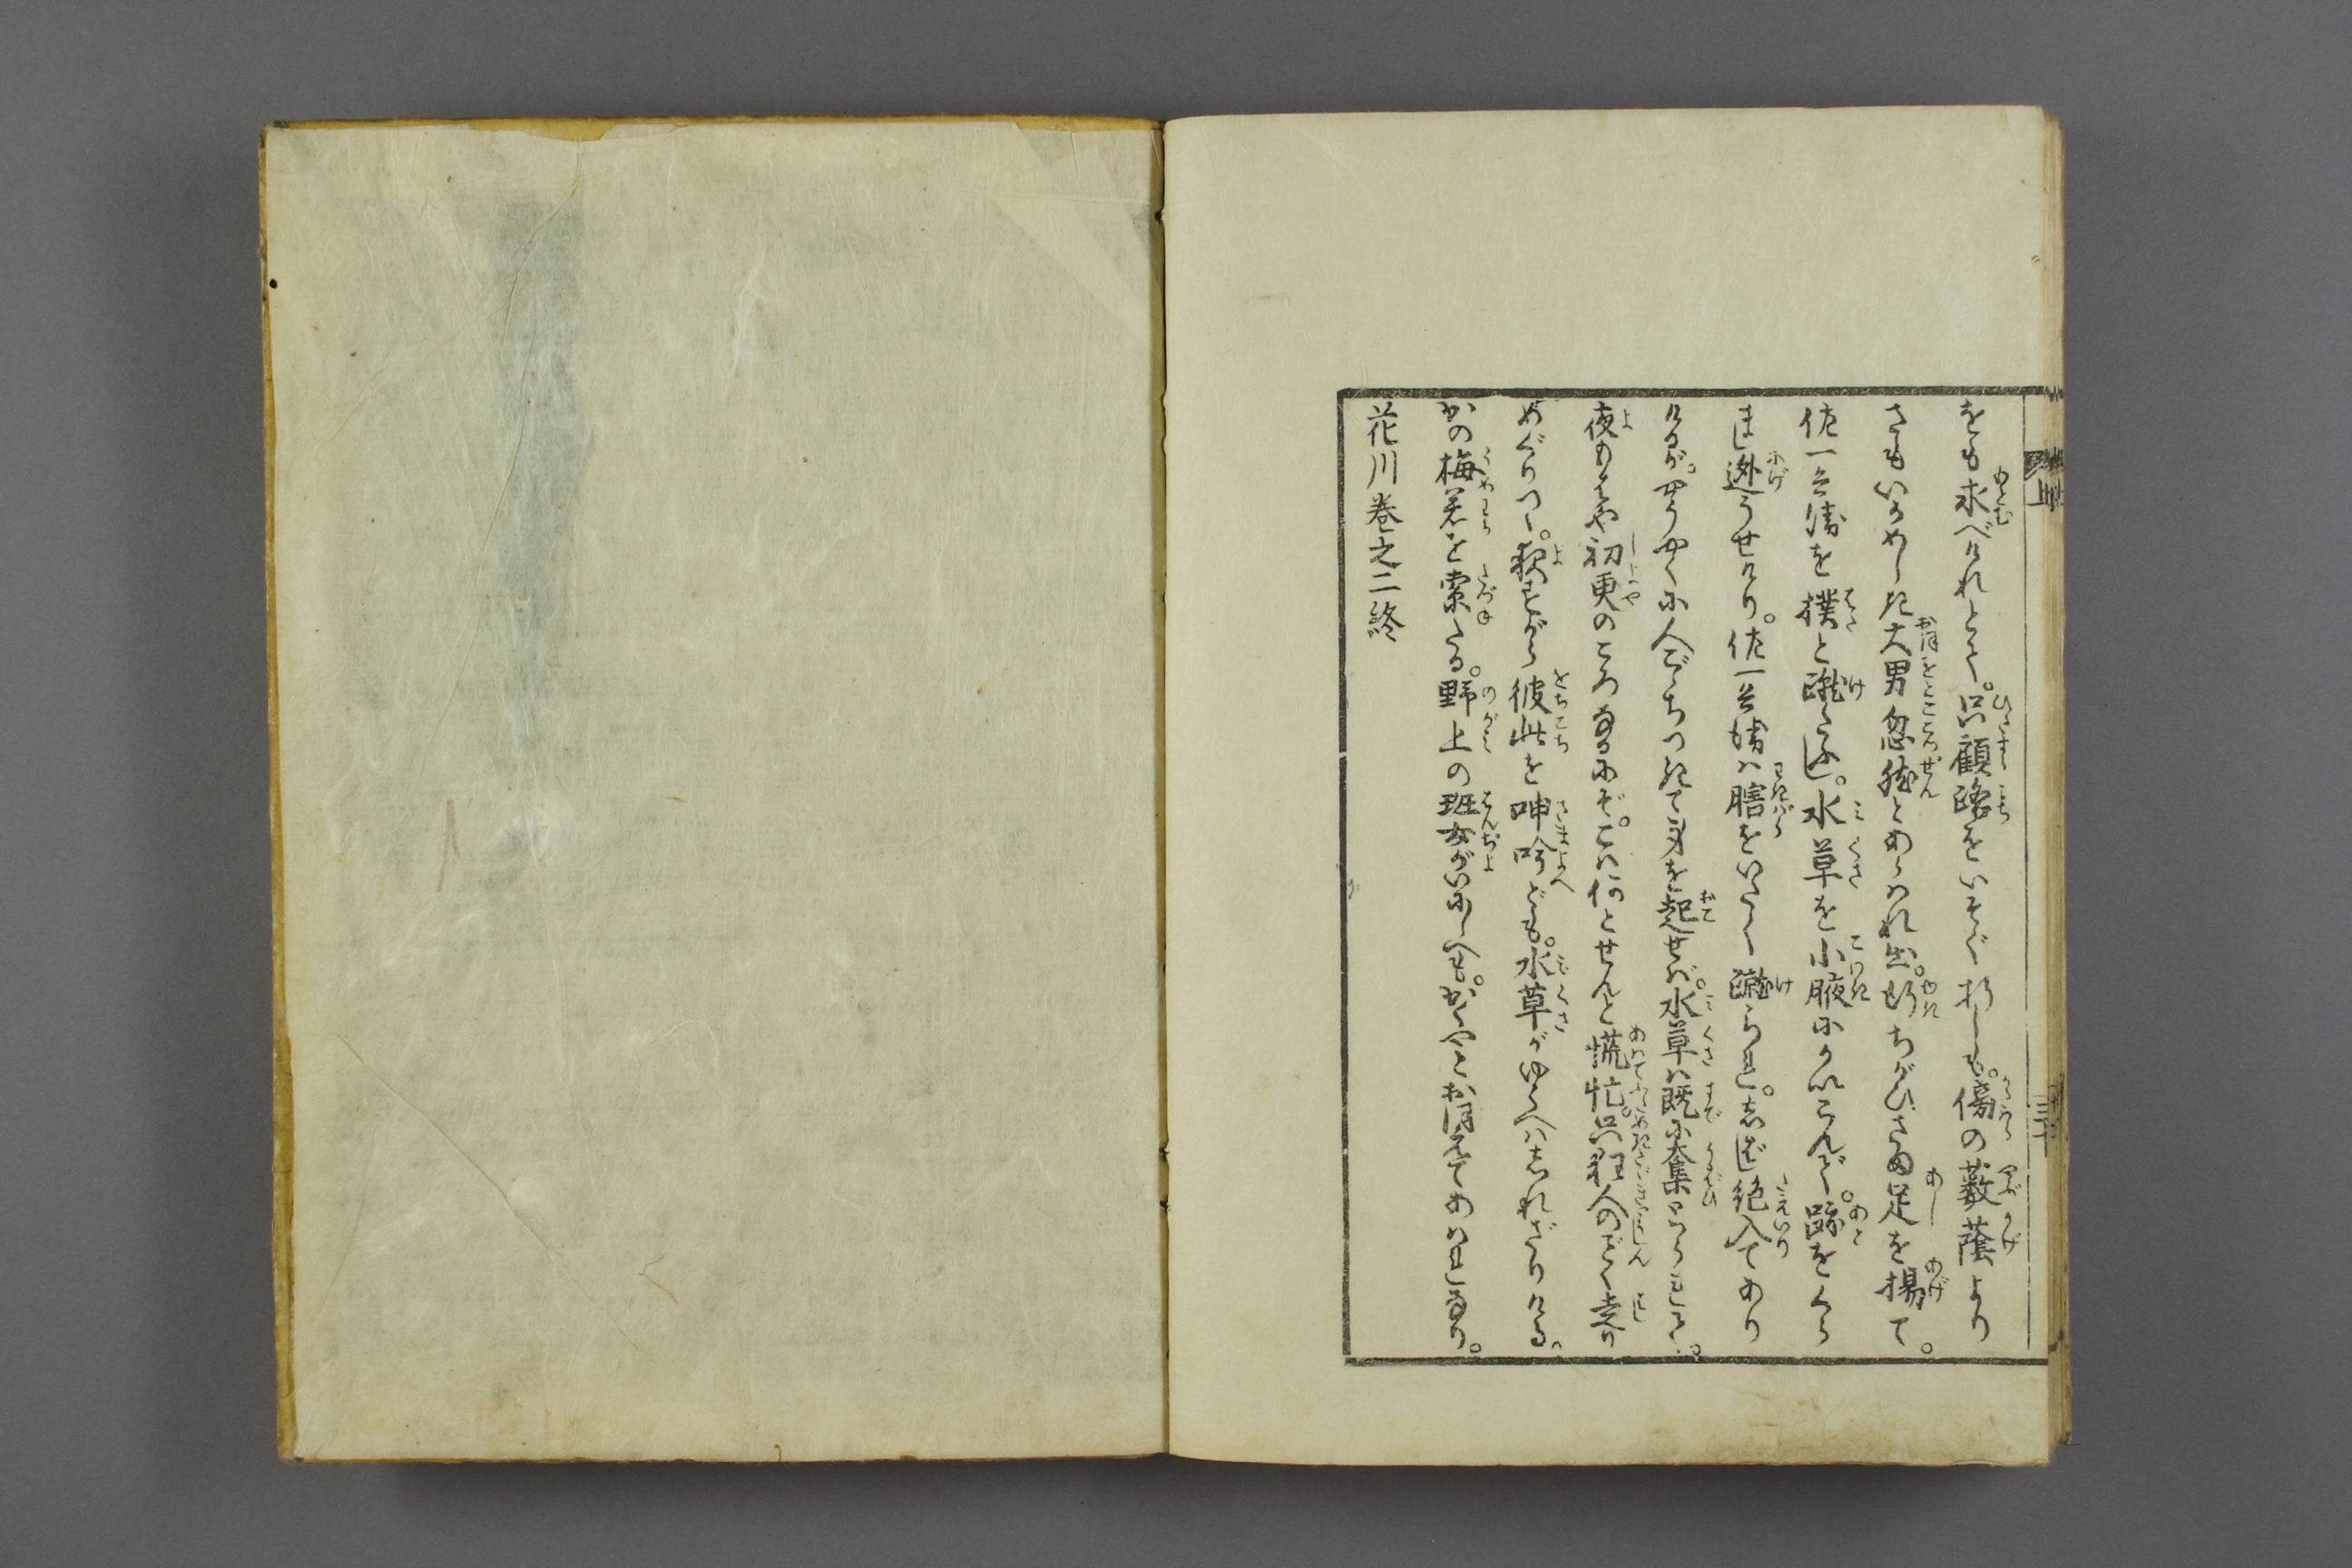 をも求べけれとて。只顧路をいそぐ折しも。傍の藪蔭より
さもいかめしき大男忽然とあらはれ出。行ちがひさま足を揚て。
佐一兵衛を撲と蹴たふし。水草を小腋にかいこんで。跡をくら
まし迯うせけり。佐一兵衛は膳をいたく蹴られ。しばし絶入てあり
けるが。やうやくに人ごこちつきて身を起せば。水草は既に奪とられて。
夜もはや初更のころなるにぞ。こは何とせんと慌忙。只狂人のごとく走り
めぐりつゝ。終夜彼此を呻吟ども。水草がゆくへはしれざりける。
かの梅若を索たる。野上の班女がいにしへも。かくやとおぼえてあはれなり。
花川巻之二終